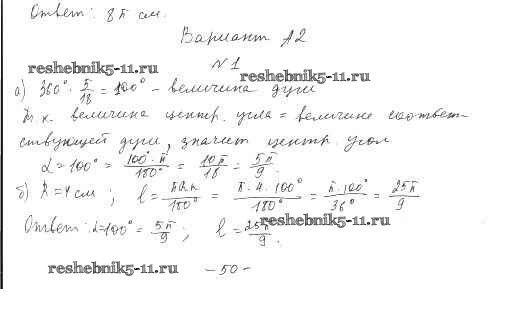 Ответ: 8π см.
Вариант А2
№1
reshebnik5-11.ru reshebnik5-11.ru
а) 360° · 5/18 = 100° – величина дуги
т.к. величина центр. угла = величине соответ-
ствующей дуги, значит центр. угол
α = 100° = 100°·π/180° = 10π/18 = 5π/9.
б) R = 4 см; l = πRn/180° = π·4·100°/180° = π·100°/36° = 25π/9
Ответ: α=100° = 5π/9; l = 25π/9.
reshebnik5-11.ru
reshebnik5-11.ru – 50 –